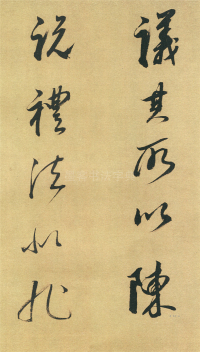 議其所以陳
說禮法公非